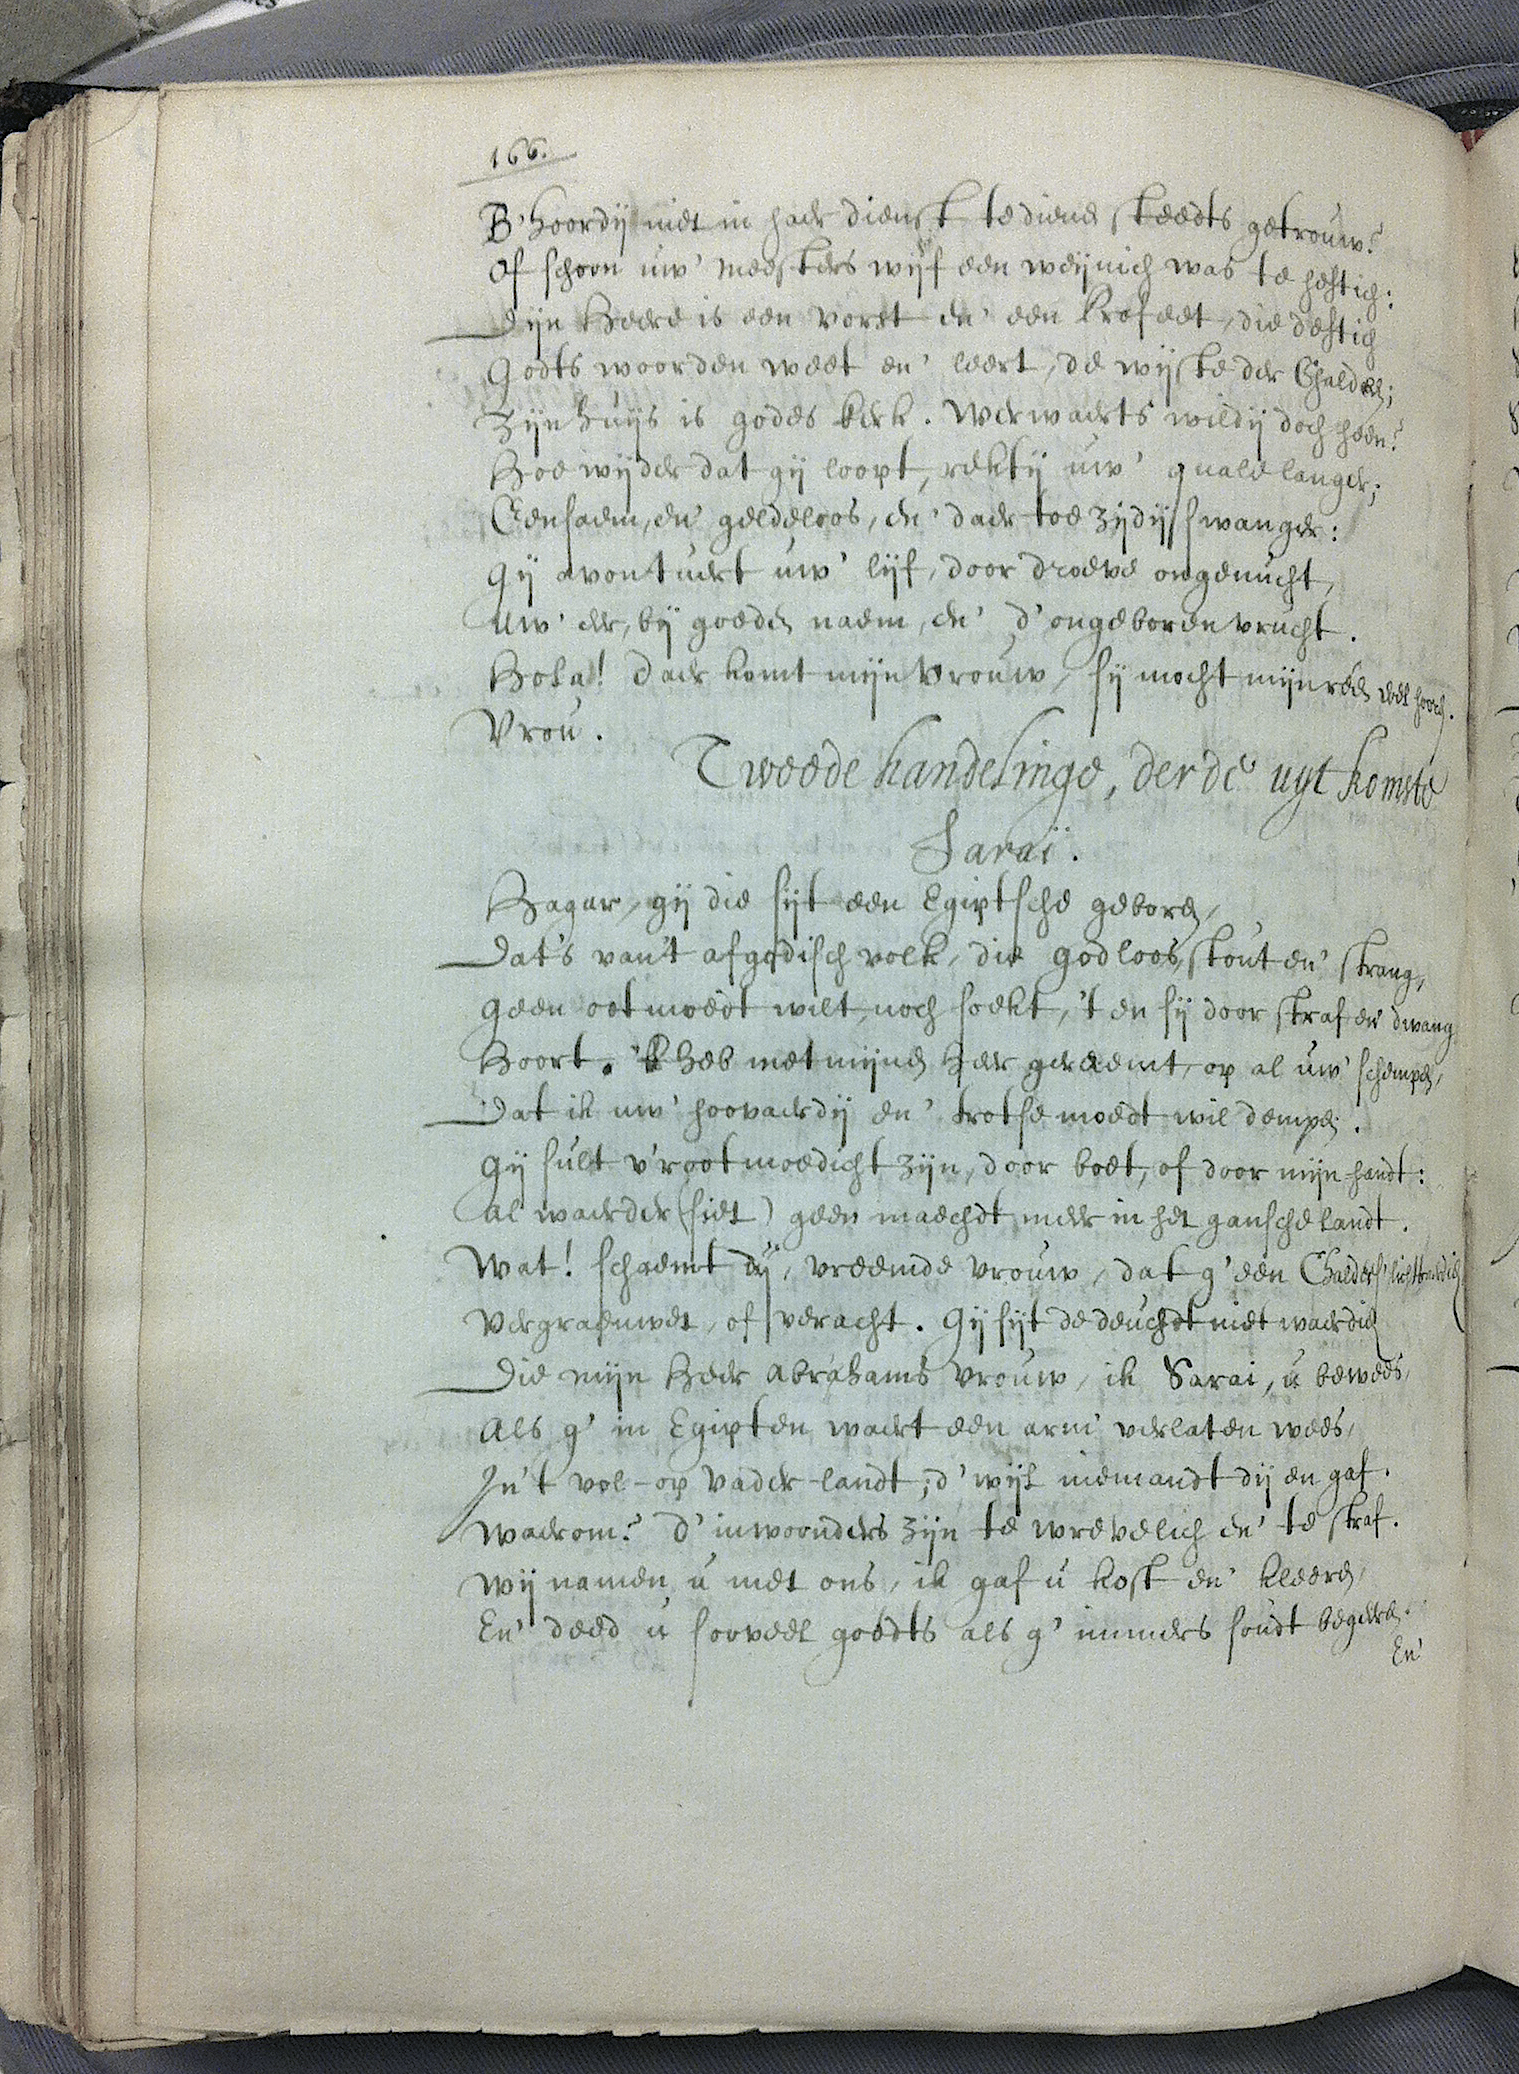 166.
B'hoordij niet in haer dienst te dienen steedts getrouw?
Of schoon uw' meesters wijf een weijnich was te heftich:
Dijn Heere is een vorst en' een Profeet, die deftich
Godts woorden weet en' leert, de wijste der Chaldeen;
Zijn huijs is godes kerk. Werwaerts wildij doch heen?
Hoe wijder dat gij loopt, rektij uw' quale langer;
Eensaem, en' geldeloos, en' daer toe zijdij swanger:
Gij avontuert uw' lijf, door droeve ongenucht,
Uw' eer, bij goeden naem, en' d'ongeboren vrucht.
Hola! daer komt mijn Vrouw, sij mocht mijn réen wel hooren.
Vrou.
Tweede handelinge, derde uyt komste
Saraï.
Hagar, gij die sijt een Egiptsche geboren,
Dat's van't afgodisch volk, die godloos, stout en' strang,
Geen ootmoedt wilt, noch soekt, 't en sij door straf en' dwang
Hoort. 'k Heb met mijnen Heer geraemt, op al uw' schempen,
Dat ik uw' hoovaerdij en' trotse moedt wil dempen.
Gij sult v'rootmoedicht zijn, door boet, of door mijn handt:
Al waerder (siet) geen maechdt meer in het gansche landt.
Wat! schaemt dij, vreemde vrouw, dat g'een Chaldees' lichtvaerdich
Vergraeuwet, of veracht. Gij sijt de deuchdt niet waerdich
Die mijn Heer Abrahams vrouw, ik Sarai, u bewees,
Als g' in Egipten waert een arm' verlaten wees,
In't vol-op vader-landt; d'wijl niemandt dij en gaf.
Waerom? d'inwoonders zijn te wrevelich en' te straf.
Wij namen u met ons, ik gaf u kost en' kleeren,
En' deed u sooveel goedts als g' immers soudt begeeren.
En'